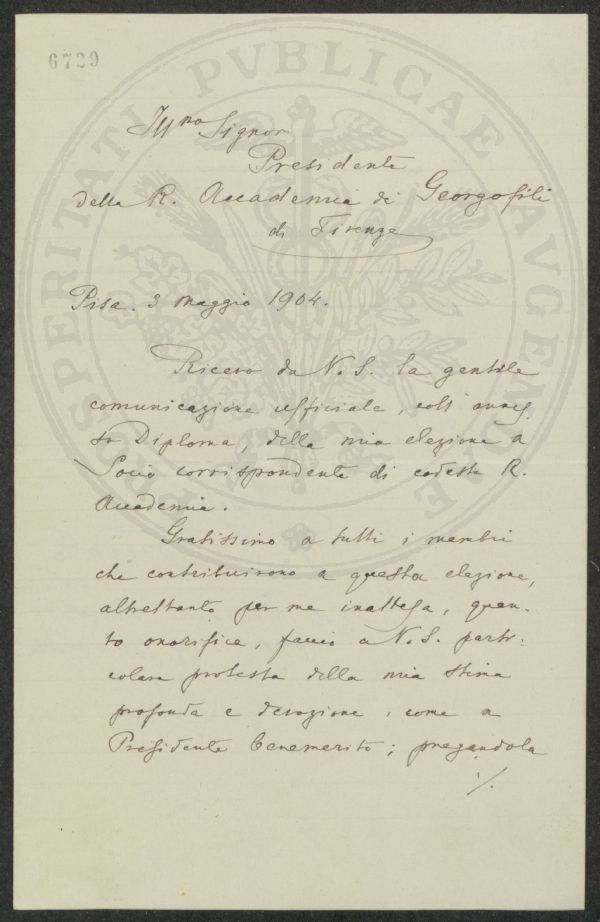 6729
PROSPERITATI PVBLICAE AVGENDAE
Ill.mo Signor
Presidente
della R. Accademia di Georgofili
di Firenze
Pisa. 3 maggio 1904.
Ricevo da V. S. la gentile
comunicazione ufficiale, coll' annes-
so Diploma, della mia elezione a
Socio corrispondente di codesta R.
Accademia.
Gratissimo a tutti i membri
che contribuirono a questa elezione,
altrettanto per me inattesa, quan-
to onorifica, faccio a V. S. parti-
colare protesta della mia stima
profonda e devozione, come a
Presidente benemerito; pregandola
./.